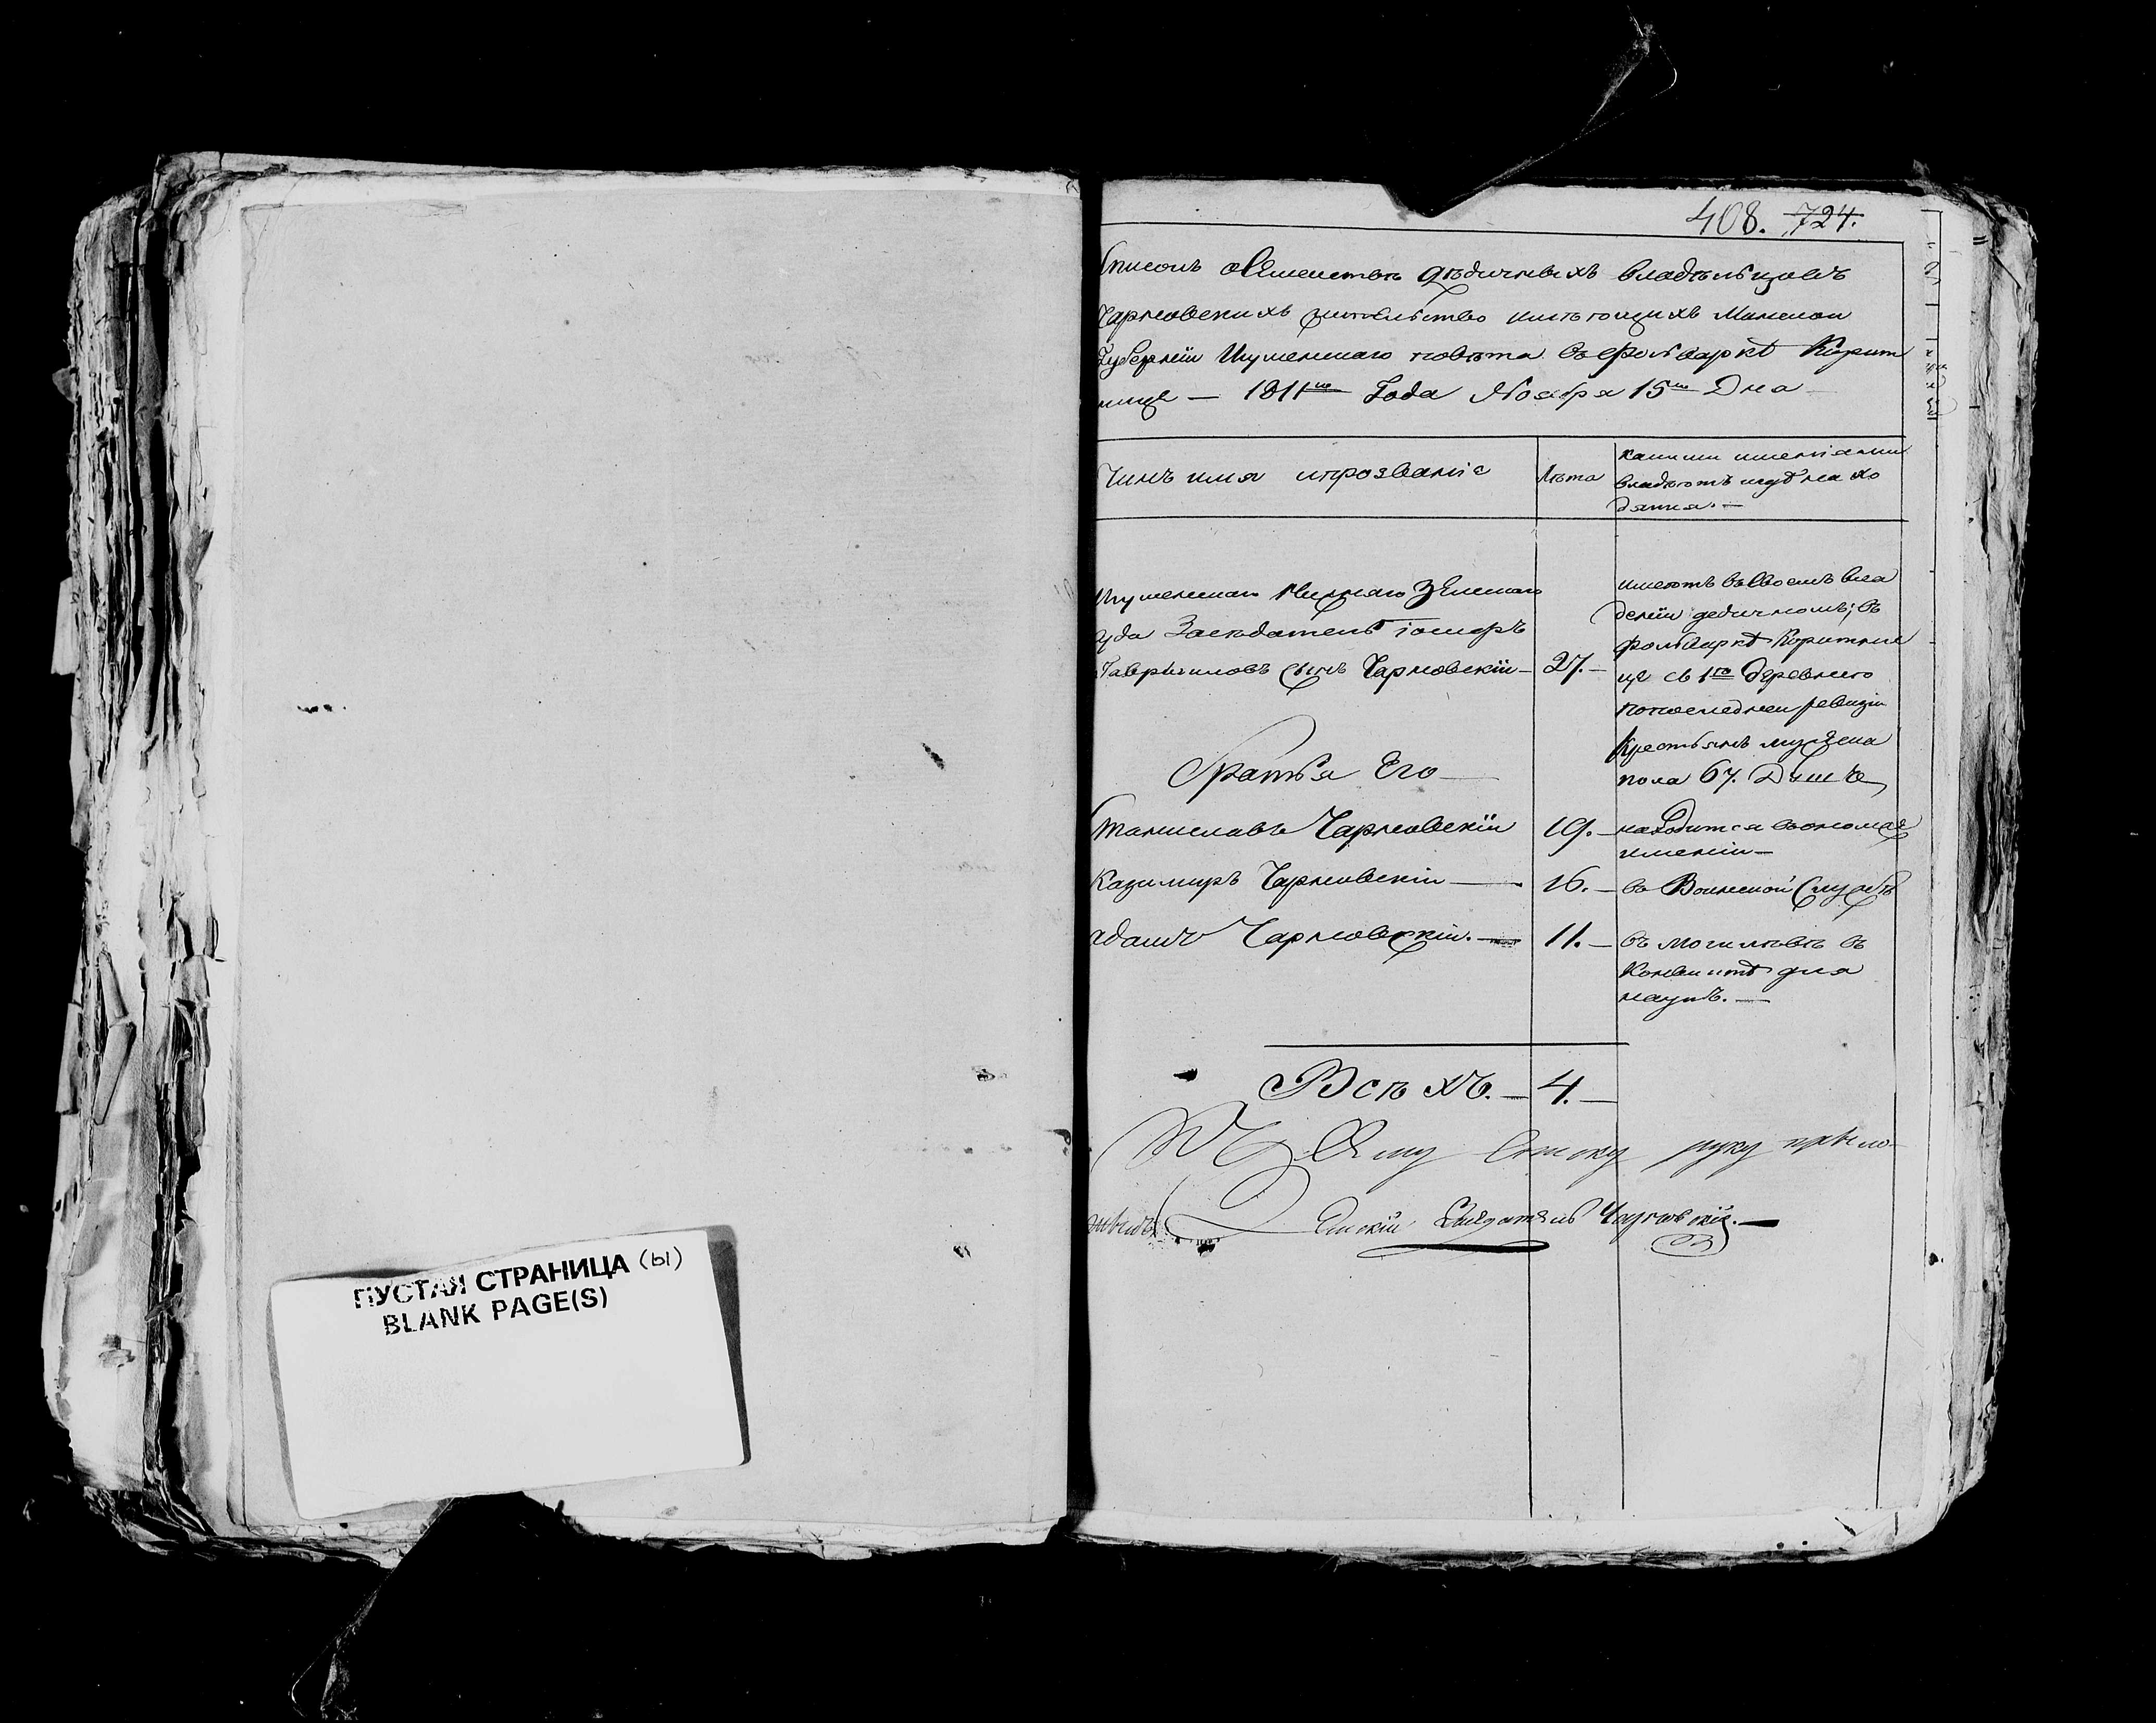 ПУСТАЯ СТРАНИЦА (Ы)
BLANK PAGE(S)
408. 724.
Списокъ о Семействѣ дѣдичныхъ владѣльцовъ
Чарновскихъ жительство имѣющихъ Минской
Губерніи Игуменскаго повѣта въ фольваркѣ Корит
нице — 1811го Года Ноября 15го Дня
Чинъ имя ипрозваніе
Лѣта
какими имѣніями
владѣютъ игдѣ нахо
дятся. —
Игуменскаго Нижняго Земскаго
Суда Заседатель Іосифъ
Гавриилов сынъ Чарновскій —
27. —
имеютъ въ своемъ вла
деніи дедичномъ; въ
фольваркѣ Коритни
це съ 1ю деревнею
попоследней ревизіи
Крестьянъ мужеска
пола 67. Душъ
Братья Его —
Станиславъ Чарновскій
19. —
находится въономже
имѣніи —
Казимиръ Чарновскій —
16. —
въ Воинской Службѣ
адамъ Чарновскій. —
11. —
въ Могилевѣ въ
Конвиктѣ для
наукъ. —
Всѣхъ. — 4. —
Къ Сему Списку руку прило-
жилъ Заседатель Чарновскій. —